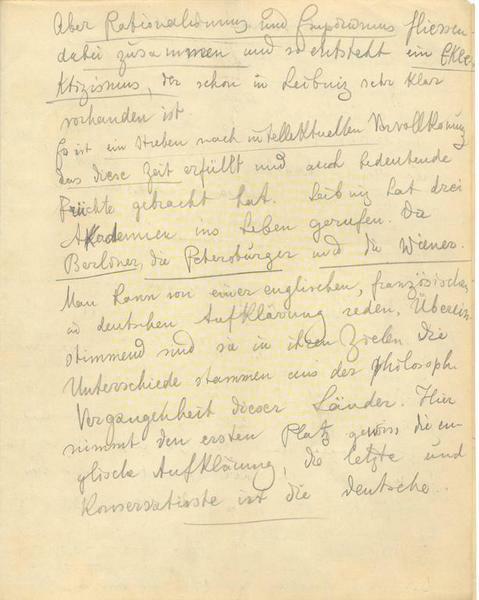 Aber Rationalismus und Empirismus fliessen
dabei zusammen und so entsteht ein Ekle-
ktizismus, der schon in Leibniz sehr klar
vorhanden ist
Es ist ein Streben nach intellektuellen Vervollkomung
das diese Zeit erfüllt und auch bedeutende
Früchte gebracht hat. Leibniz hat drei
Akademien ins Leben gerufen. Die
Berliner, die Petersburger und die Wiener.
Man kann von einer englischen, französischen
u deutschen Aufklärung reden. Überein
stimmend sind sie in ihren Zielen die
Unterschiede stammen aus der philosoph.
Vergangenheit dieser Länder. Hier
nimmt den ersten Platz gewiss die en-
glische Aufklärung, die letzte und
Konservativste ist die deutsche.